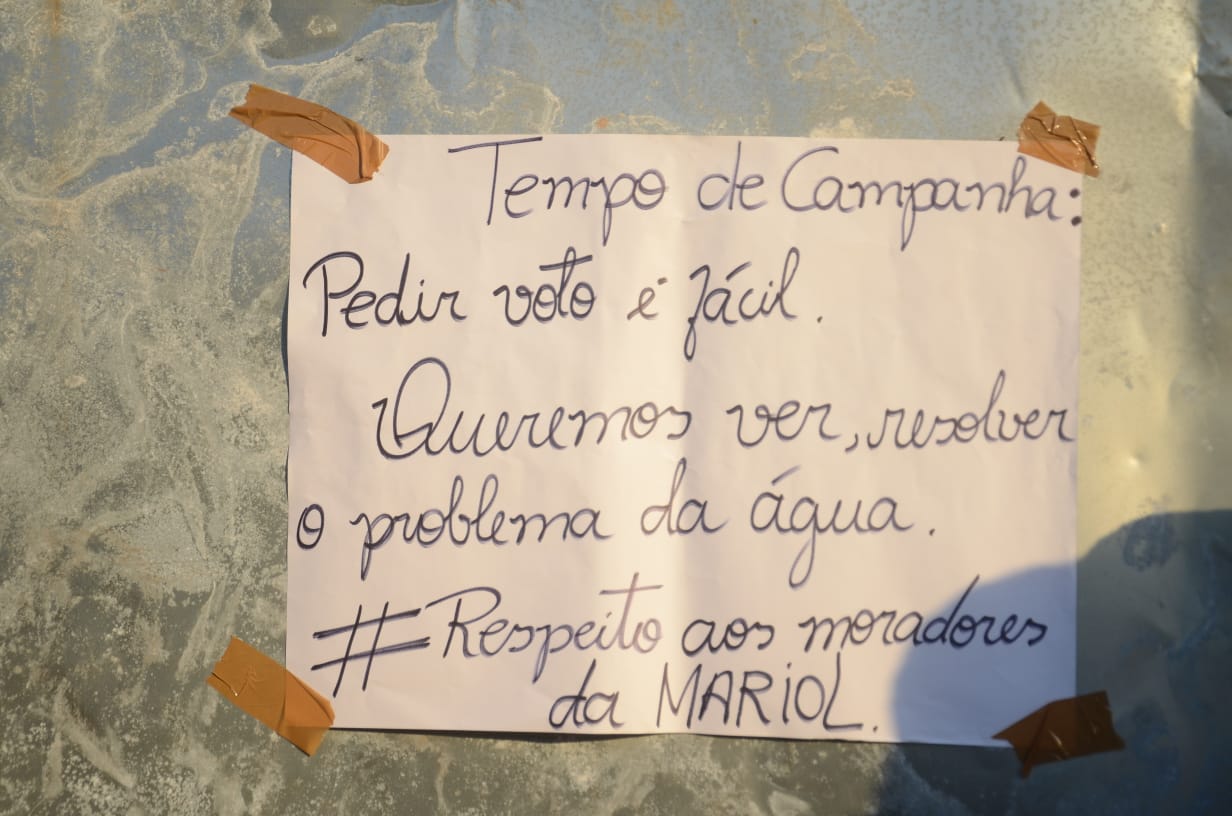 Tempo de Campanha:
Pedir voto é fácil.
Queremos ver, resolver
o problema da água.
#Respeito aos moradores
da MARiOL.